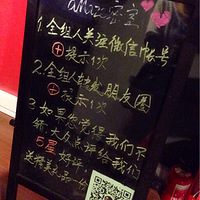 aMazE密室
1.全组人关注微信帐号
+提示一次
2.全组人转发朋友圈
+提示一次
3.如果您觉得我们不
错,大众点评给我们
5星好评
送精美礼品一份